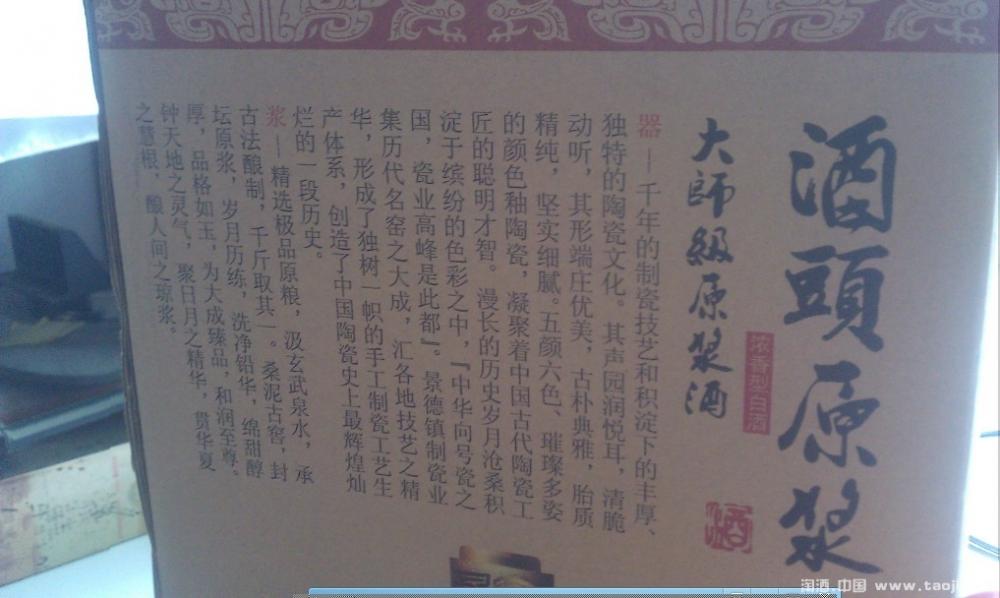 酒頭原漿
浓香型白酒
酒
大師級原漿酒
器—千年的制瓷技艺和积淀下的丰厚、
独特的陶瓷文化。其声园润悦耳，清脆
动听，其形端庄优美，古朴典雅，胎质
精纯，坚实细腻。五颜六色、璀璨多姿
的颜色釉陶瓷，凝聚着中国古代陶瓷工
匠的聪明才智。漫长的历史岁月沧桑积
淀于缤纷的色彩之中，『中华向号瓷之
国，瓷业高峰是此都』。景德镇制瓷业
集历代名窑之大成，汇各地技艺之精
华，形成了独树一帜的手工制瓷工艺生
产体系，创造了中国陶瓷史上最辉煌灿
烂的一段历史。
浆—精选极品原粮，汲玄武泉水，承
古法酿制，千斤取其一。桑泥古窖，封
坛原浆，岁月历练，洗净铅华，绵甜醇
厚，品格如玉，为大成臻品，和润至尊。
钟天地之灵气，聚日月之精华，贯华夏
之慧根，酿人间之琼浆。
淘酒.中国 www.taoj